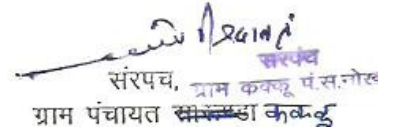 संरपच, सरपंच
ग्राम कक्कू पं.स.नोख
ग्राम पंचायत कक्कू